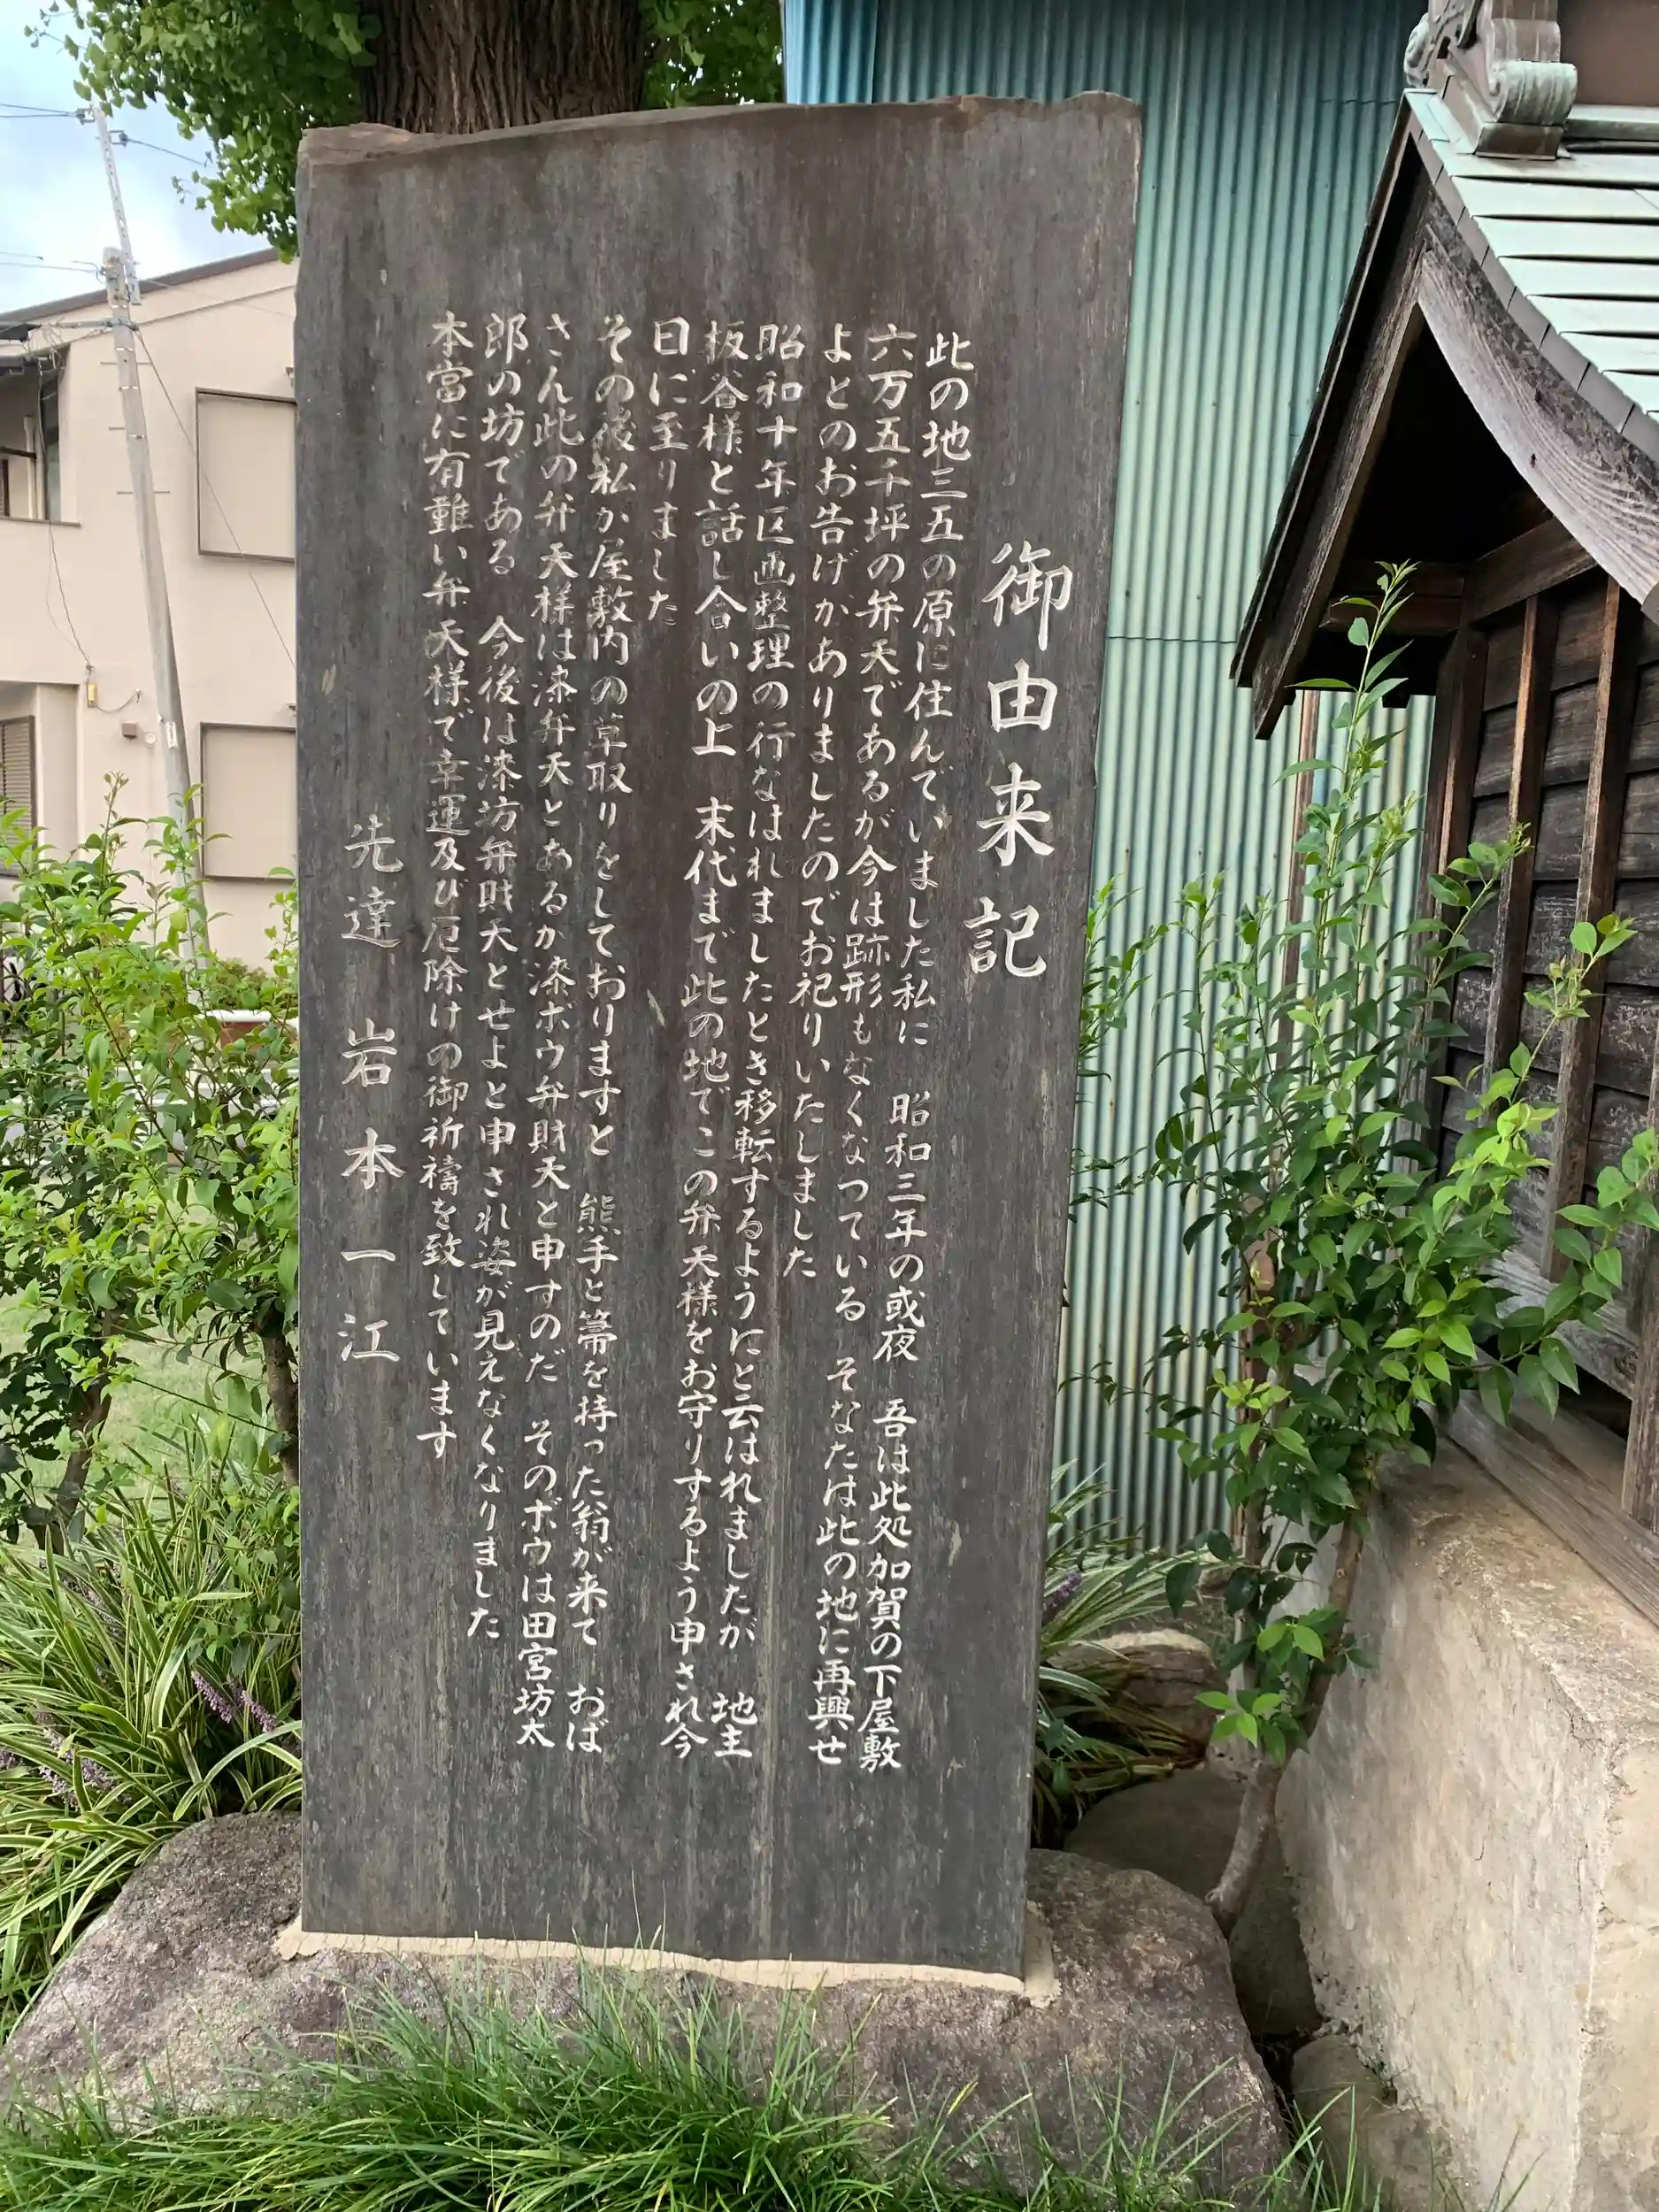 御由来記
此の地三五の原に住んでいました私に　昭和三年の或夜　吾は此処加賀の下屋敷
六万五千坪の弁天であるが今は跡形もなくなつている　そなたは此の地に再興せ
よとのお告げかありましたのでお祀りいたしました
昭和十年区画整理の行なはれましたとき移転するようにと云はれましたが　地主
板谷様と話し合いの上　末代まで此の地でこの弁天様をお守りするよう申され今
日に至りました
その後私か屋敷内の草取りをしておりますと　熊手と箒を持った翁が来て　おば
さん此の弁天様は漆弁天とあるか漆ホウ弁財天と申すのだ　そのボウは田宮坊太
郎の坊である　今後は漆坊弁財天とせよと申され姿が見えなくなりました
本當に有難い弁天様で幸運及び厄除けの御祈禱を致しています
先達　岩本一江